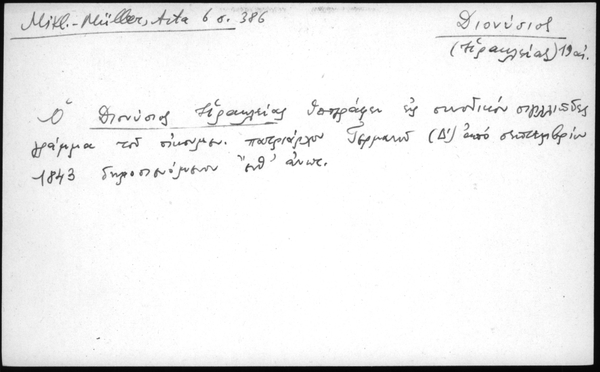 Mikl.-Müller, Acta 6 σ. 386
Διονύσιος
(Ἡρακλείας) 19 αἰ.
Ὁ Διονύσιος Ἡρακλείας ὑπογράφει εἰς συνοδικόν σιγιλλιῶδες
γράμμα τοῦ οἰκουμεν. πατριάρχου Γερμανοῦ (Δ΄) ἀπό σεπτεμβρίου
1843 δημοσιευόμενον ἀνωτ.